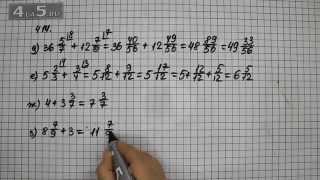 4LS.RU
414.
д) 36 5/7 + 12 7/8 = 36 40/56 + 12 49/56 = 48 89/56 = 49 33/56
е) 5 2/3 + 3/4 = 5 8/12 + 9/12 = 5 17/12 = 5 + 12/12 + 5/12 = 6 5/12
ж) 4 + 3 3/7 = 7 3/7
з) 8 7/9 + 3 = 11 7/9